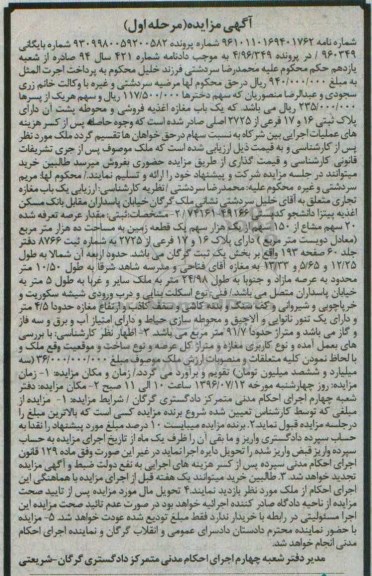 آگهی مزایده(مرحله اول)
شماره نامه ۹۶۱۰۱۱۰۱۶۹۴۰۱۷۶۲ شماره پرونده ۹۳۰۹۹۸۰۰۵۹۲۰۰۵۸۲ شماره بایگانی
۹۶۰۳۴۹ / در پرونده ۴/۹۶/۳۴۹ به موجب دادنامه شماره ۴۲۱ سال ۹۴ صادره از شعبه
یازدهم حکم محکوم علیه محمدرضا سردشتی فرزند خلیل محکوم به پرداخت اجرت المثل
به مبلغ ۹۴۰/۰۰۰/۰۰۰ ریال در حق محکوم لها مرضیه سردشتی و غیره با وکالت خانم زری
سجودی و عبدالرضا منصوریان که سهم دخترها ۱۱۷/۵۰۰/۰۰۰ ریال و سهم هریک از پسرها
۲۳۵/۰۰۰/۰۰۰ ریال می باشد. که یک باب مغازه اغذیه فروشی و محوطه پشت آن دارای
پلاک ثبتی ۱۶ و ۱۷ فرعی از ۲۷۲۵ اصلی صادر شده است که وجوه حاصله پس از کسر هزینه
های عملیات اجرایی بین شرکاه به نسبت سهام در حق خواهان ها تقسیم گردد ملک مورد نظر
پس از کارشناسی و به قیمت ذیل ارزیابی شده است که ملک موصوف پس از جری تشریفات
قانونی کارشناسی و قیمت گذاری از طریق مزایده حضوری بفروش میرسد طالبین خرید
میتوانند در جلسه مزایده شرکت و پیشنهاد خود را ارائه و تسلیم نمایند./ محکوم لها: مریم
سردشتی و غیره محکوم علیه: محمدرضا سردشتی / نظریه کارشناسی: ارزیابی یک باب مغازه
تجاری متعلق به آقای خلیل سردشتی نشانی ملک گرگان خیابان پاسداران مقابل بانک مسکن
اغذیه پیتزا دانشجو کدپستی ۴۹۱۶۶-۷۴۱۶۱ / ۲- مشخصات:ثبتی: مقدار عرصه تعرفه شده
۲۰ سهم مشاع از ۱۵۰ سهم از یک هزار سهم یک قطعه زمین به مساحت ده هزار متر مربع
(معادل دویست متر مربع) دارای پلاک ۱۶ و ۱۷ فرعی از ۲۷۲۵ به شماره ثبت ۸۷۶۶ دفتر
جلد ۶۰ صفحه ۱۹۳ واقع بر بخش یک ثبت گرگان می باشد. حدود اربعه آن شمالا به طول
۱۲/۲۵ و ۵/۶۵ و ۱۲/۳۳ به مغازه آقای فتاحی و مدرسه شاهد شرقا به طول ۱۰/۵۰ متر
محدود به عرصه مازاد و جنوبا به طول ۲۴/۹۸ متر به ملک سایر و غربا به طول ۵ متر به
خیابان پاسداران متصل می باشد/ فنی:نوع اسکلت بنایی و درب ورودی شیشه سکوریت و
خرپاچوبی و شیروانی و کف سنگ و بدنه کاشی و سقف کاذب و ارتفاع مغازه حدودا ۴/۵ متر
و دارای یک تنور نانوایی و آلاچیق و محوطه سازی حیاط و دارای امتیاز آب و برق و سه فاز
و گاز می باشد و متراژ حدودا ۹۱/۷ متر مربع می باشد. ۳- اظهار نظر کارشناسی: با بررسی
های بعمل آمده و نوع کاربری مغازه و متراژ کل عرصه و نوع ساخت و موقعیت وقع ملک و
با لحاظ نمودن کلیه متعلقات و منصوبات ارزش ملک موصوف مبلغ ۳۶/۰۰۰/۰۰۰/۰۰۰(سه
میلیارد و ششصد میلیون تومان) تقویم و برآورد می گردد/ زمان و مکان مزایده: ۱- زمان
مزایده: روز چهارشنبه مورخه ۱۳۹۶/۰۷/۱۲ ساعت ۱۰ الی ۱۱ صبح ۲- مکان مزایده: دفتر
شعبه چهارم اجرای احکام مدنی متمرکز دادگستری گرگان / شرایط مزایده: ۱- مزایده از
مبلغی که توسط کارشناس تعیین شده شروع برنده مزایده کسی است که بالاترین مبلغ را
در جلسه مزایده قبول نماید ۲. برنده مزایده میبایست ۱۰ درصد مبلغ مورد پیشنهاد را نقدا به
حساب سپرده دادگستری واریز و ما بقی آن را ظرف یک ماه از تاریخ اجرای مزایده به حساب
سپرده واریز قبض واریز شده را تحویل دایره اجرا نماید در غیر این صورت وفق ماده ۱۲۹ قانون
اجرای احکام مدنی سپرده پس از کسر هزینه های اجرایی به نفع دولت ضبط و آگهی مزایده
تجدید خواهد شد. ۳. طالبین خرید میتوانند یک هفته قبل از اجرای مزایده با هماهنگی این
اجرای احکام از ملک مورد نظر بازدید نمایند.۴ تحویل مال مورد مزایده پس از تایید صحت
مزایده از ناحیه دادگاه صادر کننده اجرائیه خواهد بود در صورت عدم تائید صحت مزایده این
اجرا مسئولیتی در رابطه با خریدار ندارد فقط مبلغ تودیع شده عودت خواهد شد. ۵- مزایده
با حضور نماینده محترم دادستان دادسرای عمومی و انقلاب گرگان و نماینده اجرای احکام
مدنی انجام خواهد شد.
مدیر دفتر شعبه چهارم اجرای احکام مدنی متمرکز دادگستری گرگان-شریعتی